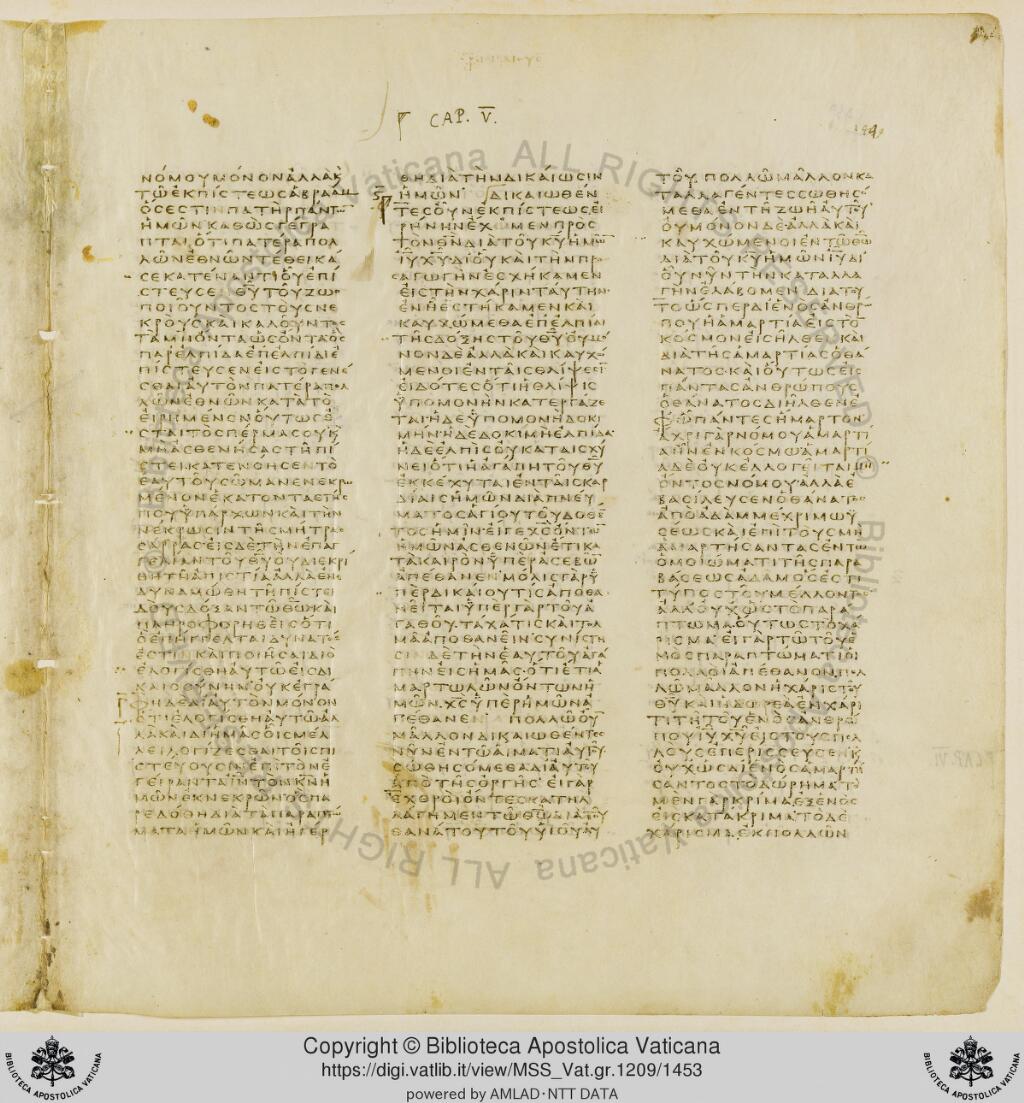 CAP. V.
ΝΟΜΟΥΜΟΝΟΝΑΛΛΑΚ
ΤΩΕΚΠΙΣΤΕΩΣΑΒΡΑΑΜ
ΟΣΕΣΤΙΝΠΑΤΗΡΠΑΝΤΩ
ΗΜΩΝΚΑΘΩΣΓΕΓΡΑ
ΠΤΑΙΟΤΙΠΑΤΕΡΑΠΟΛ
ΛΩΝΕΘΝΩΝΤΕΘΕΙΚΑ
ΣΕΚΑΤΕΝΑΝΤΙΟΥΕΠΙ
ΣΤΕΥΣΕΘΥΤΟΥΖΩΟ
ΠΟΙΟΥΝΤΟΣΤΟΥΣΝΕ
ΚΡΟΥΣΚΑΙΚΑΛΟΥΝΤΟΣ
ΤΑΜΗΟΝΤΑΩΣΟΝΤΑΟΣ
ΠΑΡΕΛΠΙΔΑΕΠΕΛΠΙΔΙΕ
ΠΙΣΤΕΥΣΕΝΕΙΣΤΟΓΕΝΕ
ΣΘΑΙΑΥΤΟΝΠΑΤΕΡΑΠΟΛ
ΛΩΝΕΘΝΩΝΚΑΤΑΤΟ
ΕΙΡΗΜΕΝΟΝΟΥΤΩΣΕ
ΣΤΑΙΤΟΣΠΕΡΜΑΣΟΥΚ
ΜΗΑΣΘΕΝΗΣΑΣΤΗΠΙ
ΣΤΕΙΚΑΤΕΝΟΗΣΕΝΤΟ
ΕΑΥΤΟΥΣΩΜΑΝΕΝΕΚΡΩ
ΜΕΝΟΝΕΚΑΤΟΝΤΑΕΤΗΣ
ΠΟΥΥΠΑΡΧΩΝΚΑΙΤΗΝ
ΝΕΚΡΩΣΙΝΤΗΣΜΗΤΡΑΣ
ΣΑΡΡΑΣΕΙΣΔΕΤΗΝΕΠΑΓ
ΓΕΛΙΑΝΤΟΥΘΥΟΥΔΙΕΚΡΙ
ΘΗΤΗΑΠΙΣΤΙΑΑΛΛΑΕΝΕ
ΔΥΝΑΜΩΘΗΤΗΠΙΣΤΕΙ
ΔΟΥΣΔΟΞΑΝΤΩΘΩΚΑΙ
ΠΛΗΡΟΦΟΡΗΘΕΙΣΟΤΙ
ΟΕΠΗΓΓΕΛΤΑΙΔΥΝΑΤΟΣ
ΕΣΤΙΝΚΑΙΠΟΙΗΣΑΙΔΙΟ
ΕΛΟΓΙΣΘΗΑΥΤΩΕΙΣΔΙ
ΚΑΙΟΣΥΝΗΝΟΥΚΕΓΡΑ
ΦΗΔΕΔΙΑΥΤΟΝΜΟΝΟΝ
ΟΤΙΕΛΟΓΙΣΘΗΑΥΤΩΑΛ
ΛΑΚΑΙΔΙΗΜΑΣΟΙΣΜΕΛ
ΛΕΙΛΟΓΙΖΕΣΘΑΙΤΟΙΣΠΙ
ΣΤΕΥΟΥΣΙΝΕΠΙΤΟΝΕ
ΓΕΙΡΑΝΤΑΙΝΤΟΝΚΝΗ
ΜΩΝΕΚΝΕΚΡΩΝΟΣΠΑ
ΡΕΔΟΘΗΔΙΑΤΑΠΑΡΑΠΤΩ
ΜΑΤΑΗΜΩΝΚΑΙΗΓΕΡ
ΘΗΔΙΑΤΗΝΔΙΚΑΙΩΣΙΝ
ΗΜΩΝ ΔΙΚΑΙΩΘΕΝ
ΤΕΣΟΥΝΕΚΠΙΣΤΕΩΣΕΙ
ΡΗΝΗΝΕΧΩΜΕΝΠΡΟΣ
ΤΟΝΘΝΔΙΑΤΟΥΚΥΗΜΩ
ΙΥΧΥΔΙΟΥΚΑΙΤΗΝΠΡΟ
ΣΑΓΩΓΗΝΕΣΧΗΚΑΜΕΝ
ΕΙΣΤΗΝΧΑΡΙΝΤΑΥΤΗΝ
ΕΝΗΕΣΤΗΚΑΜΕΝΚΑΙ
ΚΑΥΧΩΜΕΘΑΕΠΕΛΠΙΔΙ
ΤΗΣΔΟΞΗΣΤΟΥΘΥΟΥΜΟ
ΝΟΝΔΕΑΛΛΑΚΑΙΚΑΥΧΩ
ΜΕΝΟΙΕΝΤΑΙΣΘΛΙΨΕΣΙ
ΕΙΔΟΤΕΣΟΤΙΗΘΛΙΨΙΣ
ΥΠΟΜΟΝΗΝΚΑΤΕΡΓΑΖΕ
ΤΑΙΗΔΕΥΠΟΜΟΝΗΔΟΚΙ
ΜΗΝΗΔΕΔΟΚΙΜΗΕΛΠΙΔΑ
ΗΔΕΕΛΠΙΣΟΥΚΑΤΑΙΣΧΥ
ΝΕΙΟΤΙΗΑΓΑΠΗΤΟΥΘΥ
ΕΚΚΕΧΥΤΑΙΕΝΤΑΙΣΚΑΡ
ΔΙΑΙΣΗΜΩΝΔΙΑΠΝΕΥ
ΜΑΤΟΣΑΓΙΟΥΤΟΥΔΟΘΕ
ΤΟΣΗΜΙΝΕΙΓΕΧΣΟΝΤΩ
ΗΜΩΝΑΣΘΕΝΩΝΕΤΙΚΑ
ΤΑΚΑΙΡΟΝΥΠΕΡΑΣΕΒΩ
ΑΠΕΘΑΝΕΝΜΟΛΙΣΓΑΡΥ
ΠΕΡΔΙΚΑΙΟΥΤΙΣΑΠΟΘΑ
ΝΕΙΤΑΙΥΠΕΡΓΑΡΤΟΥΑ
ΓΑΘΟΥΤΑΧΑΤΙΣΚΑΙΤΟΛ
ΜΑΑΠΟΘΑΝΕΙΝΣΥΝΙΣΤΗ
ΣΙΝΔΕΤΗΝΕΑΥΤΟΥΑΓΑ
ΠΗΝΕΙΣΗΜΑΣΟΤΙΕΤΙΑ
ΜΑΡΤΩΛΩΝΟΝΤΩΝΗ
ΜΩΝΧΣΥΠΕΡΗΜΩΝΑ
ΠΕΘΑΝΕΝ ΠΟΛΛΩΟΥ
ΜΑΛΛΟΝΔΙΚΑΙΩΘΕΝΤΕΣ
ΝΥΝΕΝΤΩΑΙΜΑΤΙΑΥΤΟΥ
ΣΩΘΗΣΟΜΕΘΑΔΙΑΥΤΟΥ
ΑΠΟΤΗΣΟΡΓΗΣΕΙΓΑΡ
ΕΧΘΡΟΙΟΝΤΕΣΚΑΤΗΛ
ΛΑΓΗΜΕΝΤΩΘΩΔΙΑΤΟΥ
ΘΑΝΑΤΟΥΤΟΥΥΙΟΥΑΥ
ΤΟΥΠΟΛΛΩΜΑΛΛΟΝΚΑ
ΤΑΛΛΑΓΕΝΤΕΣΣΩΘΗΣΟ
ΜΕΘΑΕΝΤΗΖΩΗΑΥΤΟΥ
ΟΥΜΟΝΟΝΔΕΑΛΛΑΚΑΙ
ΚΑΥΧΩΜΕΝΟΙΕΝΤΩΘΩ
ΔΙΑΤΟΥΚΥΗΜΩΝΙΥΔΙ
ΟΥΝΥΝΤΗΝΚΑΤΑΛΛΑ
ΓΗΝΕΛΑΒΟΜΕΝΔΙΑΤΟΥ
ΤΟΩΣΠΕΡΔΙΕΝΟΣΑΝΘΡΩ
ΠΟΥΗΑΜΑΡΤΙΑΕΙΣΤΟ
ΚΟΣΜΟΝΕΙΣΗΛΘΕΝΚΑΙ
ΔΙΑΤΗΣΑΜΑΡΤΙΑΣΟΘΑ
ΝΑΤΟΣΚΑΙΟΥΤΩΣΕΙΣ
ΠΑΝΤΑΣΑΝΘΡΩΠΟΥΣ
ΟΘΑΝΑΤΟΣΔΙΗΛΘΕΝΕ
ΦΩΠΑΝΤΕΣΗΜΑΡΤΟΝ
ΑΧΡΙΓΑΡΝΟΜΟΥΑΜΑΡΤΙ
ΑΗΝΕΝΚΟΣΜΩΑΜΑΡΤΙ
ΑΔΕΟΥΚΕΛΛΟΓΕΙΤΑΙΜΗ
ΟΝΤΟΣΝΟΜΟΥΑΛΛΑΕ
ΒΑΣΙΛΕΥΣΕΝΟΘΑΝΑΤΟΣ
ΑΠΟΑΔΑΜΜΕΧΡΙΜΩΥ
ΣΕΩΣΚΑΙΕΠΙΤΟΥΣΜΗ
ΑΜΑΡΤΗΣΑΝΤΑΣΕΝΤΩ
ΟΜΟΙΩΜΑΤΙΤΗΣΠΑΡΑ
ΒΑΣΕΩΣΑΔΑΜΟΣΕΣΤΙ
ΤΥΠΟΣΤΟΥΜΕΛΛΟΝΤΟΣ
ΑΛΛΟΥΧΩΣΤΟΠΑΡΑ
ΠΤΩΜΑΟΥΤΩΣΤΟΧΑ
ΡΙΣΜΑΕΙΓΑΡΤΩΤΟΥΕ
ΝΟΣΠΑΡΑΠΤΩΜΑΤΙΟΙ
ΠΟΛΛΟΙΑΠΕΘΑΝΟΝΠΟΛ
ΛΩΜΑΛΛΟΝΗΧΑΡΙΣΤΟΥ
ΘΥΚΑΙΗΔΩΡΕΑΕΝΧΑΡΙ
ΤΙΤΗΤΟΥΕΝΟΣΑΝΘΡΩ
ΠΟΥΙΥΧΥΕΙΣΤΟΥΣΠΟΛ
ΛΟΥΣΕΠΕΡΙΣΣΕΥΣΕΝΚ
ΟΥΧΩΣΔΙΕΝΟΣΑΜΑΡΤΗ
ΣΑΝΤΟΣΤΟΔΩΡΗΜΑΤΟ
ΜΕΝΓΑΡΚΡΙΜΑΕΞΕΝΟΣ
ΕΙΣΚΑΤΑΚΡΙΜΑΤΟΔΕ
ΧΑΡΙΣΜΑΕΚΠΟΛΛΩΝ
Copyright © Biblioteca Apostolica Vaticana
https://digi.vatlib.it/view/MSS_Vat.gr.1209/1453
powered by AMLAD·NTT DATA